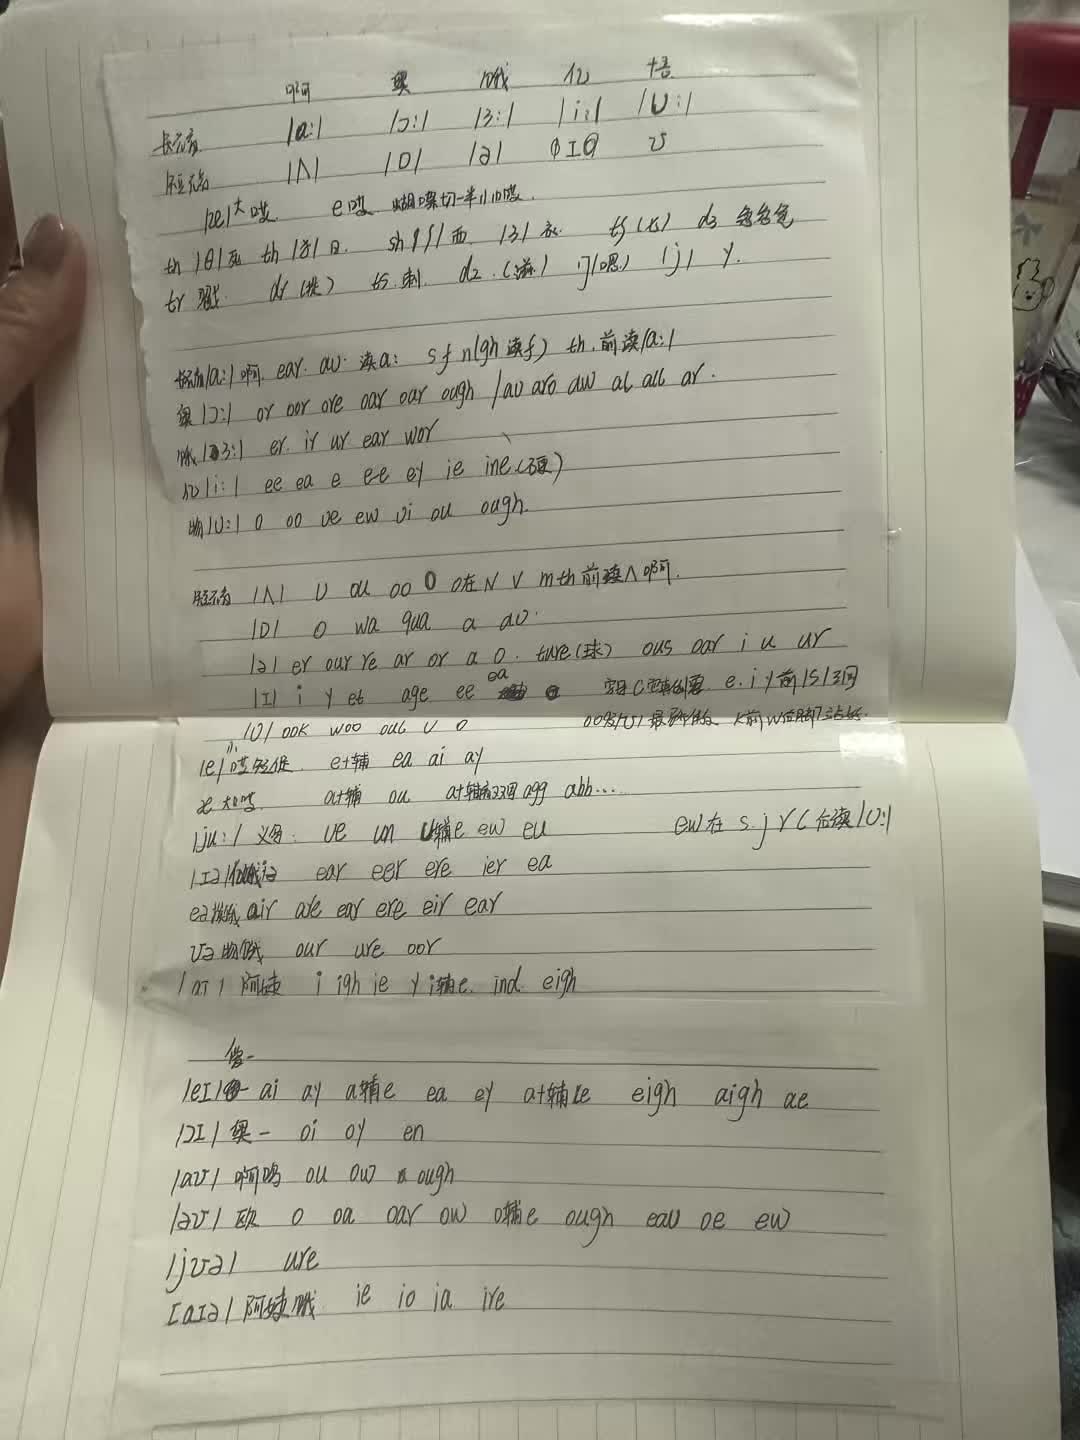 啊 奥 哦 亿 悟
长元音 |ɑ:| |ɔ:| |ɜ:| |i:| |U:|
短元音 |ʌ| |ɒ| |ə| I ʊ
|æ|大哎 e哎 蝴蝶切一半小哎.
th |θ| 死 th |ð| 日. sh |ʃ| 西 |ʒ| 衣 tʃ dʒ
tr 戳. dr ts.刺. dz. ŋ(嗯) |j| y.
长音|ɑ:| 啊. ear. au. 读ɑ: s f n(gh读f) th.前读|ɑ:|
奥|ɔ:| or oor ore oar our ough |au aro aw al all ar.
哦|ɜ:| er. ir ur ear wor
亿|i:| ee ea e ey ie ine
物|U:| o oo ue ew ui ou ough.
短元音 |ʌ| U ou oo o o在 N V m th前读ʌ啊.
|ɒ| o wa qua a au.
|ə| er our re ar or a o. ture(球) ous oar i u ur
|I| i y et age ee ea e. i y前|S|
|U| ook woo oul u o
|e| 小哎短促 e+辅 ea ai ay
æ 大哎 a+辅 au a+辅辅 agg abb...
|ju:| 义乌: ue un u辅e ew eu ew在 s. j r l 后读|U:|
|Iə| ear eer ere ier ea
eə air are ear ere eir ear
ʊə 物哦 our ure oor
|aI| 阿姨 i igh ie y i辅e. ind. eigh
|eI| ai ay a辅e ea ey a+辅le eigh aigh ae
|ɔI| 奥一 oi oy en
|aʊ| 啊呜 ou ow ough
|əʊ| 欧 o oa oar ow o辅e ough eau oe ew
|jʊə| ure
[aIə| 阿姨哦 ie io ia ire